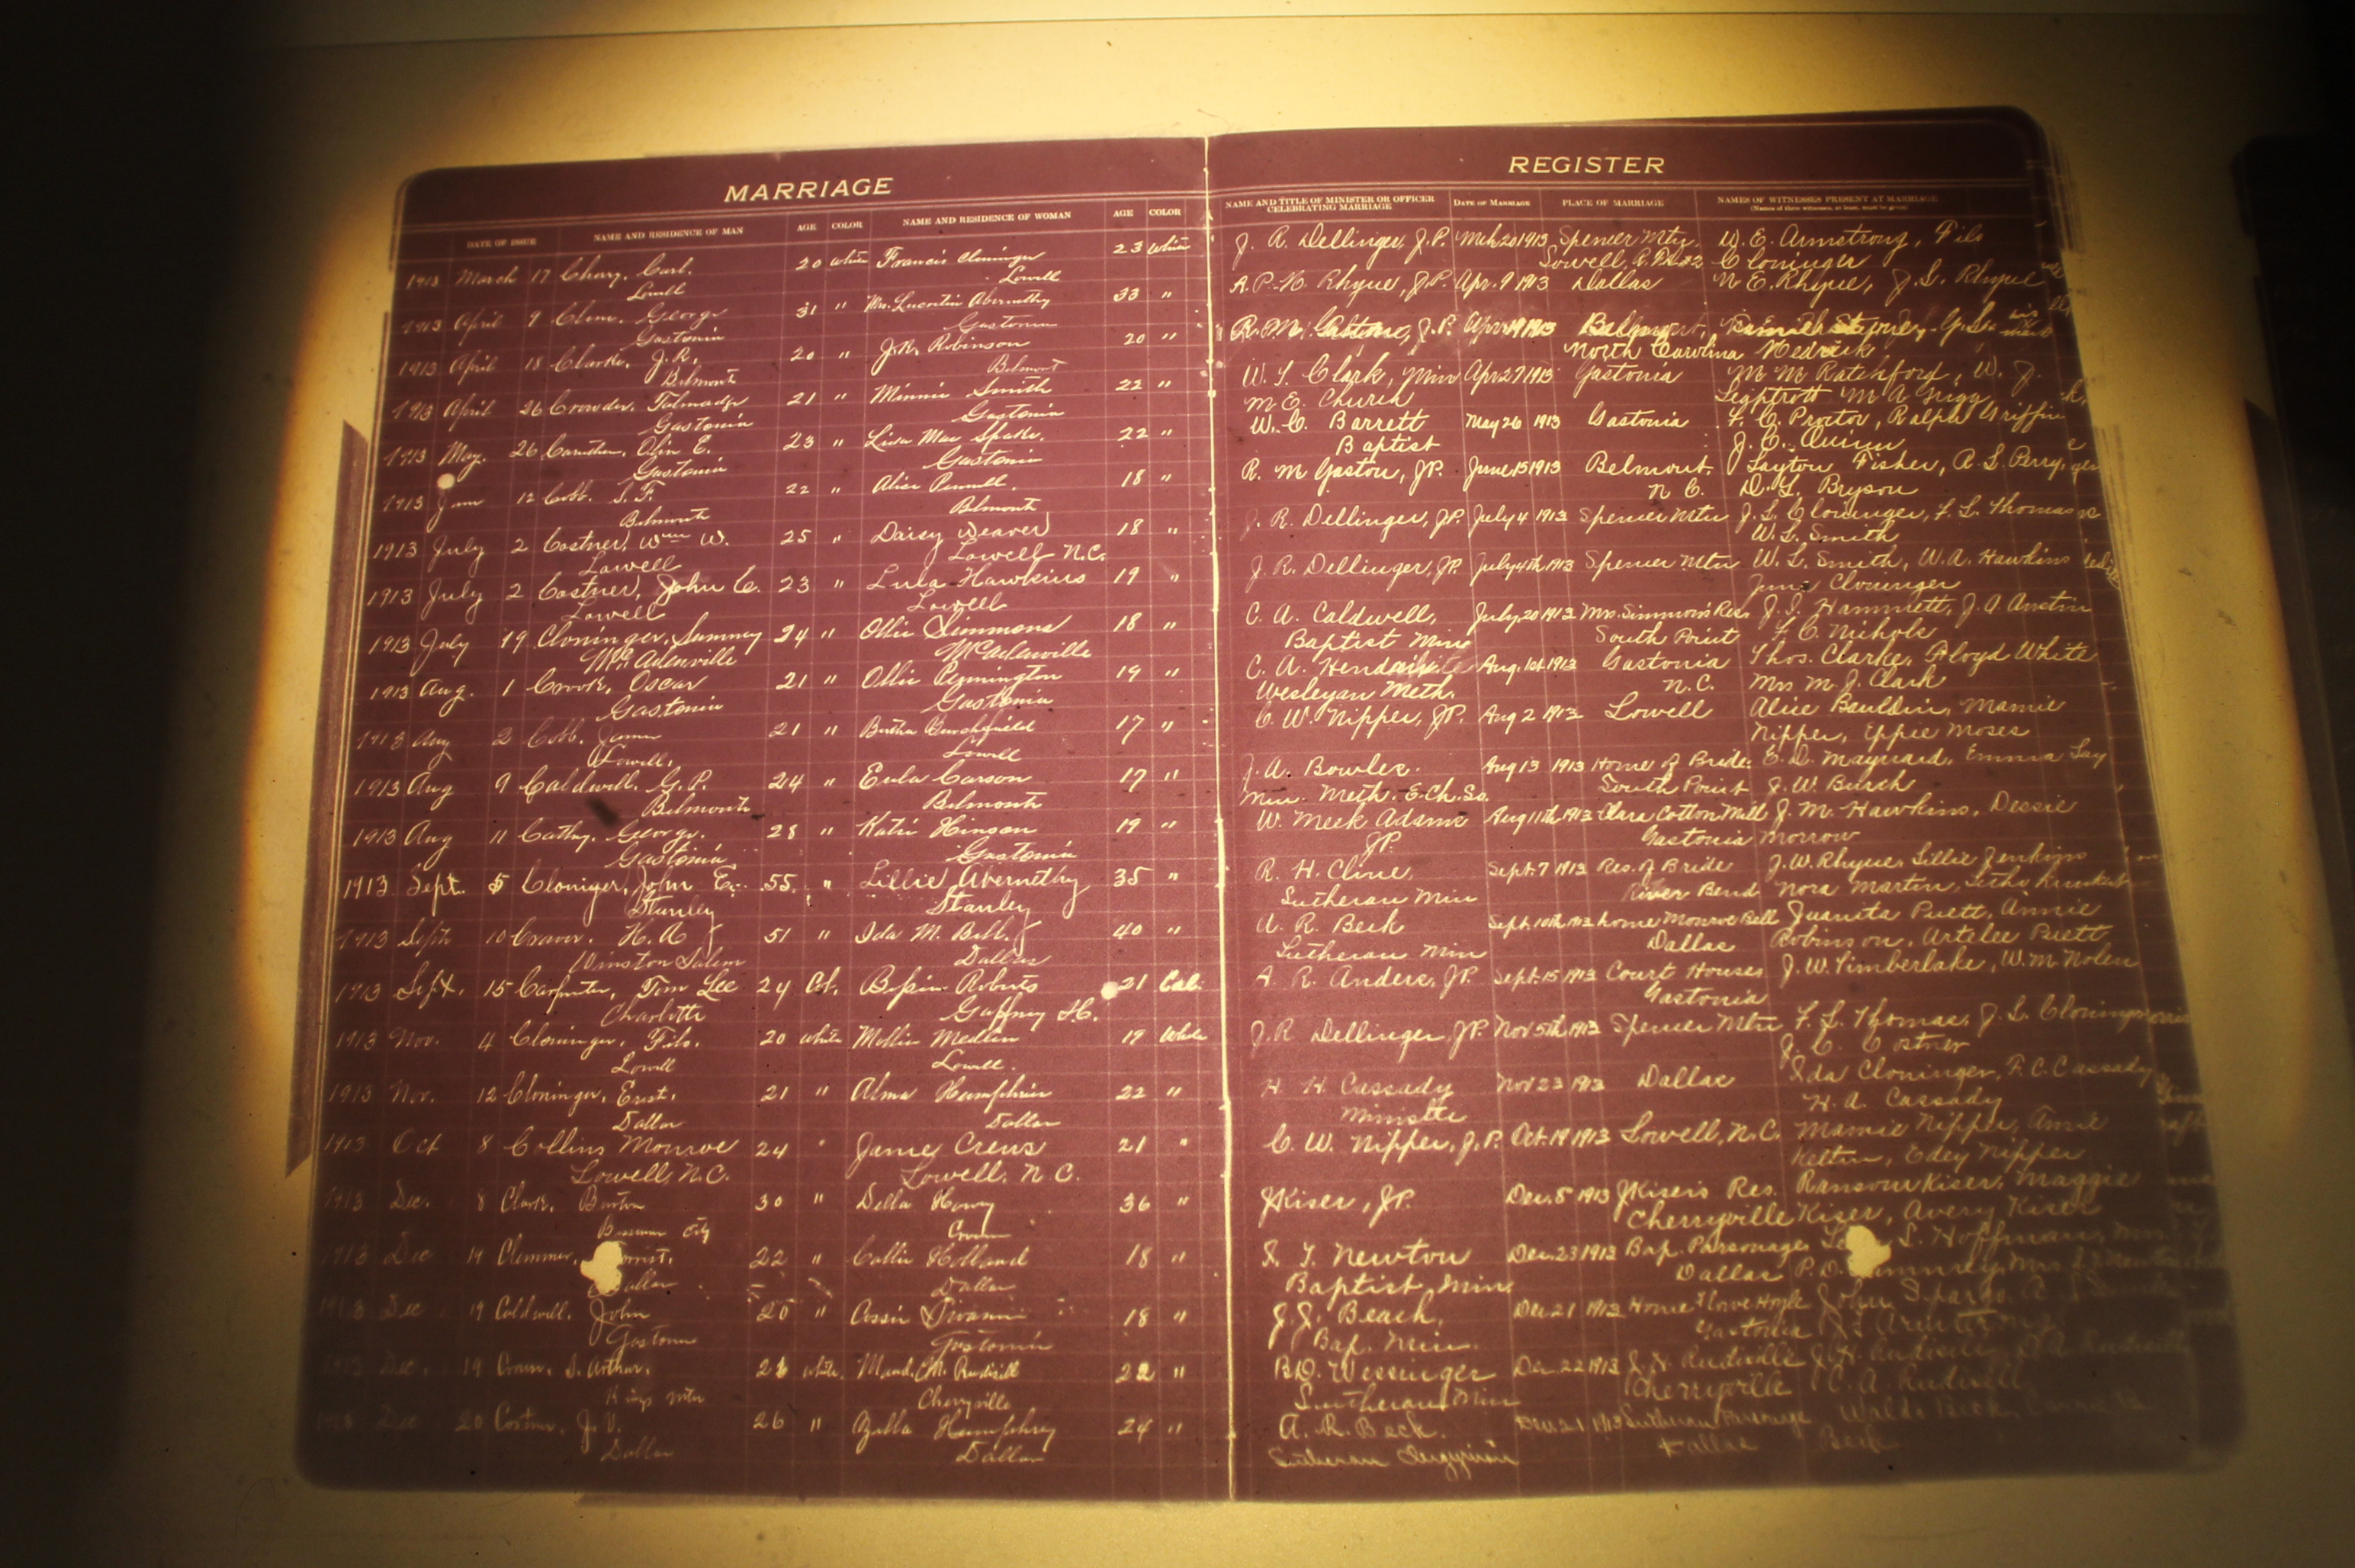 MARRIAGE
REGISTER
DATE OF ISSUE NAME AND RESIDENCE OF MAN AGE COLOR NAME AND RESIDENCE OF WOMAN AGE COLOR
NAME AND TITLE OF MINISTER OR OFFICER CELEBRATING MARRIAGE DATE OF MARRIAGE PLACE OF MARRIAGE NAMES OF WITNESSES PRESENT AT MARRIAGE
1913 March 17 Carl. 20 white Francis Cloninger 23 White
Lowell Lowell
1913 April 9 Cline, George 31 " Mrs. Abernethy 33 "
Gastonia Gastonia
1913 April 18 Clarke, J.R. 20 " J.R. Robinson 20 "
Belmont Belmont
1913 April 26 Crowder, Talmadge 21 " Minnie Smith 22 "
Gastonia Gastonia
1913 May. 26 Olin E. 23 " Mae 22 "
Gastonia Gastonia
1913 June 12 Cobb. S.F. 22 " Alice 18 "
Belmont Belmont
1913 July 2 Costner, Wm W. 25 " Daisy Weaver 18 "
Lowell Lowell N.C.
1913 July 2 Costner, John C. 23 " Lula Hawkins 19 "
Lowell Lowell
1913 July 19 Cloninger, Summey 24 " Ollie Simmons 18 "
McAdenville McAdenville
1913 Aug. 1 Crook, Oscar 21 " Ollie Pennington 19 "
Gastonia Gastonia
1913 Aug 2 Cobb. James 21 " Bertha Burchfield 17 "
Lowell, Lowell
1913 Aug 9 Caldwell. G.P. 24 " Eula Carson 17 "
Belmont Belmont
1913 Aug 11 Cathy. George. 28 " Katie Hinson 19 "
Gastonia Gastonia
1913 Sept. 5 Cloniger, John E. 55 " Lillie Abernethy 35 "
Stanley Stanley
1913 Sept 10 Craver. H.A 51 " Ida M. Bell. 40 "
Winston Salem Dallas
1913 Sept. 15 Carpenter, Tom Lee 24 Col. Bessie Roberts 21 Col.
Charlotte Gaffney S.C.
1913 Nov. 4 Cloninger, Filo. 20 white Mollie Medlin 19 White
Lowell Lowell.
1913 Nov. 12 Cloninger, Ernst. 21 " Alma Humphries 22 "
Dallas Dallas
1913 Oct 8 Collins Monroe 24 " Janie Crews 21 "
Lowell, N.C. Lowell, N.C.
1913 Dec. 8 Clark, Burton 30 " Della 36 "
Bessemer City
1913 Dec 19 Clemmer, 22 " Callie Holland 18 "
Dallas Dallas
1913 Dec 19 Caldwell. John 20 " 18 "
Gastonia Gastonia
1913 Dec. 19 Arthur. white. Maud M. Rudisill 22 "
Kings Mtn Cherryville
1913 Dec 20 Costner, J.V. 26 " Zulla Humphrey 24 "
Dallas Dallas
J. R. Dellinger, J.P. Mch 20 1913 Spencer Mtn. W. E. Armstrong, Filo
Lowell, Cloninger
A.P. Rhyne, J.P. Apr. 9 1913 Dallas N E. Rhyne, Rhyne
R.M. Gaston, J.P. Belmont,
North Carolina Hedrick
Clark, Min Apr 27 1913 Gastonia M M Ratchford, W. J.
M E. Church M A
W. C. Barrett May 26 1913 Gastonia F. C. Proctor, Ralph Griffin
Baptist J. C. Quinn
R. M Gaston, JP. June 15 1913 Belmont. Layton Fisher, A. L. Perry,
N C. Bryson
J. R. Dellinger, JP. July 4 1913 Spencer Mtn J. L. Cloninger, F. L. Thomas
W. L. Smith
J. R. Dellinger, JP. July 4th 1913 Spencer Mtn W. L. Smith, W. A. Hawkins
Cloninger
C. A. Caldwell, July 20 1913 Mrs. Simmons Res. J. J. Hammett, J. A. Austin
Baptist Min South Point F. C. Nichols
C. A. Aug. 1st 1913 Gastonia Thos. Clarke, Floyd White
Wesleyan Meth. N.C. Mrs M. J. Clark
C. W. Nipper, JP. Aug 2 1913 Lowell Alice Bauldin, Mamie
Nipper, Eppie Moses
J. A. Bowles. Aug 13 1913 Home of Bride. E. D. Maynard, Emma Lay
Min. Meth. E. Ch. So. South Point J. W. Burch
W. Meek Adams Aug 11th 1913 Clara Cotton Mill J. M. Hawkins, Dessie
JP. Gastonia Morrow
R. H. Cline, Sept. 7 1913 Res. of Bride J. W. Rhyne, Lillie Jenkins
Lutheran Min River Bend Nora Martin,
A. R. Beck Sept. 10th 1913 home Monroe Bell Juanita Puett, Annie
Lutheran Min Dallas Robinson, Artelee Puett
A. R. Anders, JP. Sept. 15 1913 Court House J. W. Timberlake, W. M. Nolen
Gastonia
J. R Dellinger, JP. Nov 5th 1913 Spencer Mtn F. L. Thomas, J. L. Cloninger
J. C. Costner
H. H. Cassady Nov 23 1913 Dallas Ida Cloninger, F. C. Cassady
Minister H. A. Cassady
C. W. Nipper, J.P. Oct. 19 1913 Lowell, N.C. Mamie Nipper,
Edey Nipper
J Kiser, JP. Dec. 8 1913 J Kiser's Res. Ransom Kiser, Maggie
Cherryville Kiser, Avery Kiser
Newton Dec. 23 1913 Bap. Parsonage L. Hoffman, Mrs.
Baptist Min Dallas P. D. Mrs
J. J. Beach. Dec 21 1913 Home John
Bap. Min. Gastonia
B.D. Wessinger Dec. 22 1913
Lutheran Min Cherryville C. A. Rudisill
A. R. Beck. Dec 21 1913 Lutheran Parsonage Beck,
Lutheran Clergyman Dallas Beck